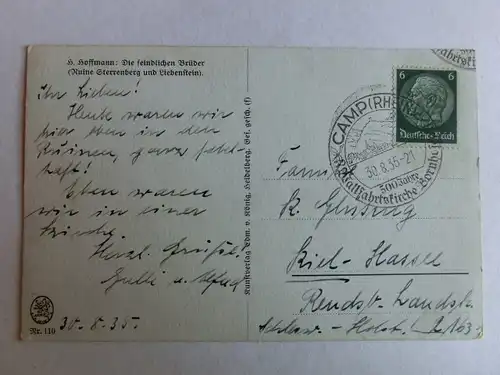 H. Hoffmann: Die feindlichen Brüder
(Ruine Sterrenberg und Liebenstein).
Ihr Lieben!
Heute waren wir
hier oben in den
Ruinen, ganz fabel-
haft!
Eben waren
wir in einer
Kirche
Herzl. Grüße!
u.
30.8.35.
Nr. 110
Kunstverlag Edm. v. König, Heidelberg. Ges. gesch. (f)
6 6
Deutsches Reich
CAMP (RH
30.8.35-21
500 Jahre
Wallfahrtskirche Bornho
Kiel - Hassee
Rendsb. Landstr.
Schlesw. - Holst.!